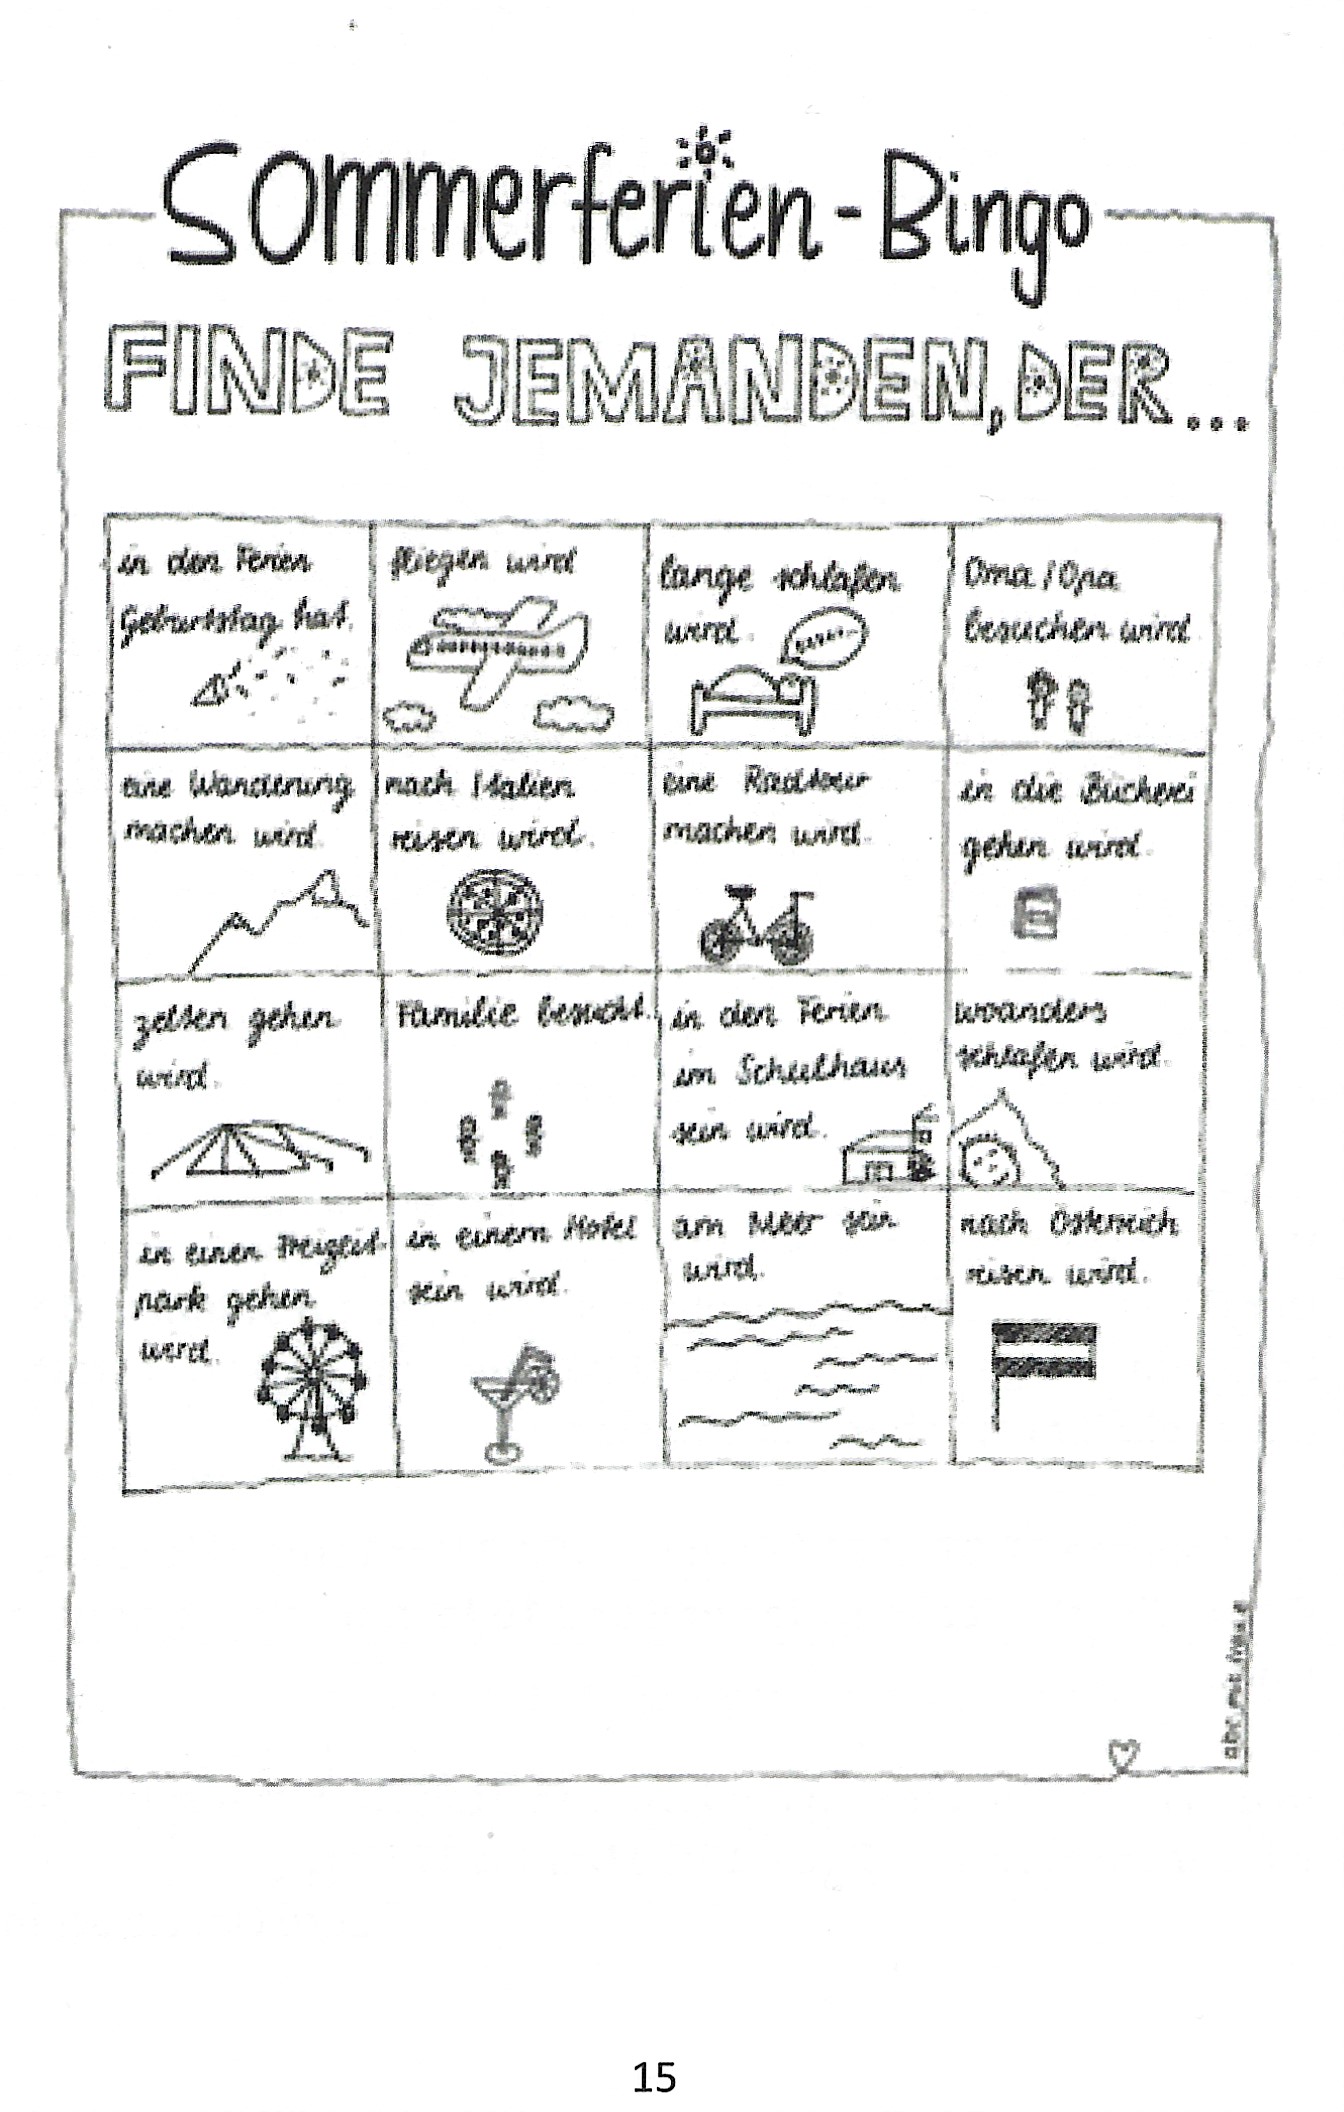 Sommerferien-Bingo
FINDE JEMANDEN, DER...
in den Ferien
Geburtstag hat.
fliegen wird
lange schlafen
wird.
Oma/Opa
besuchen wird
eine Wanderung
machen wird.
nach Italien
reisen wird.
eine Radtour
machen wird.
in die Bücherei
gehen wird.
zelten gehen
wird.
Familie besucht.
in den Ferien
im Schulhaus
sein wird.
woanders
schlafen wird.
in einen Freizeit-
park gehen
wird.
in einem Hotel
sein wird.
am Meer sein
wird.
nach Österreich
reisen wird.
15